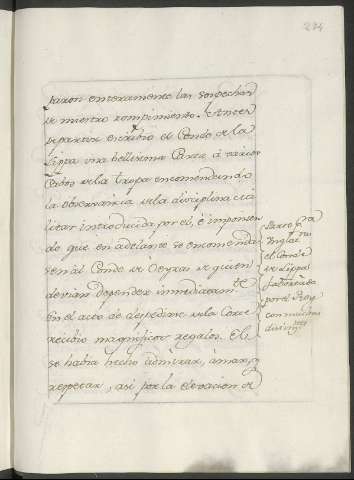 274
taron enteramente las sospechas
de nuestro rompimiento. Antes
de partir escribió el Conde de la
Lippa una bellisima Carta á varios
Cavos de la tropa encomendando
la observancia de la disciplina mi
litar introducida por el, é imponien
do que en adelante se encomenda
sen al Conde de Oeyras de quien
devian depender inmediatam.te
En el acto de despedirse de la Corte
recibió magnificos regalos. El
se habia hecho admirar, ámar, y
respetar, asi por la elevacion de
Parte p.a
Ynglat.
el Conde
de Lippa
faborecido
por el Rey
con muchas
distinc.nes